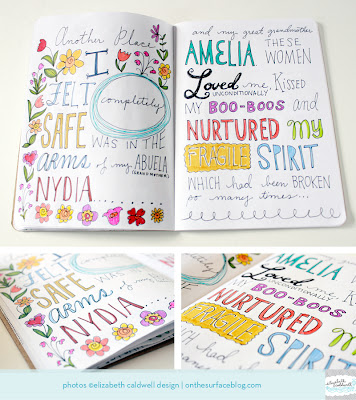 Another Place
I
FELT
completely
SAFE
WAS IN THE
ARMS of my ABUELA
(GRAND MOTHER)
NYDIA......
and my great grandmother
AMELIA THESE
WOMEN
Loved me, Kissed
UNCONDITIONALLY
MY BOO-BOOS and
NURTURED MY
FRAGILE SPIRIT
WHICH had been BROKEN
so many times...
FELT
SAFE WAS
ARMS of my
NYDIA....
AMELIA
Loved
UNCONDITIONALLY
MY BOO-BOOS
NURTURED
FRAGILE SPIRIT
WHICH had
so many
photos ©elizabeth caldwell design | onthesurfaceblog.com